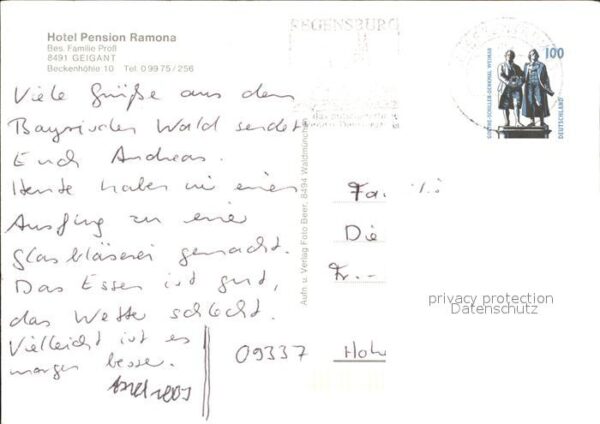 Hotel Pension Ramona
Bes. Familie Pröll
8491 GEIGANT
Beckenhöhle 10 Tel. 0 99 75 / 256
REGENSBURG
100
GOETHE-SCHILLER-DENKMAL WEIMAR
DEUTSCHLAND
Viele Grüße aus dem
Bayrischen Wald sendet
Euch Andreas.
Heute haben wir einen
Ausflug zu einer
Glasbläserei gemacht.
Das Essen ist gut,
das Wetter schlecht.
Vielleicht ist es
morgen besser.
Andreas
Aufn. u. Verlag Foto Beer, 8494 Waldmünchen
Fa
Die
Fr.
09337 Hoh
privacy protection
Datenschutz